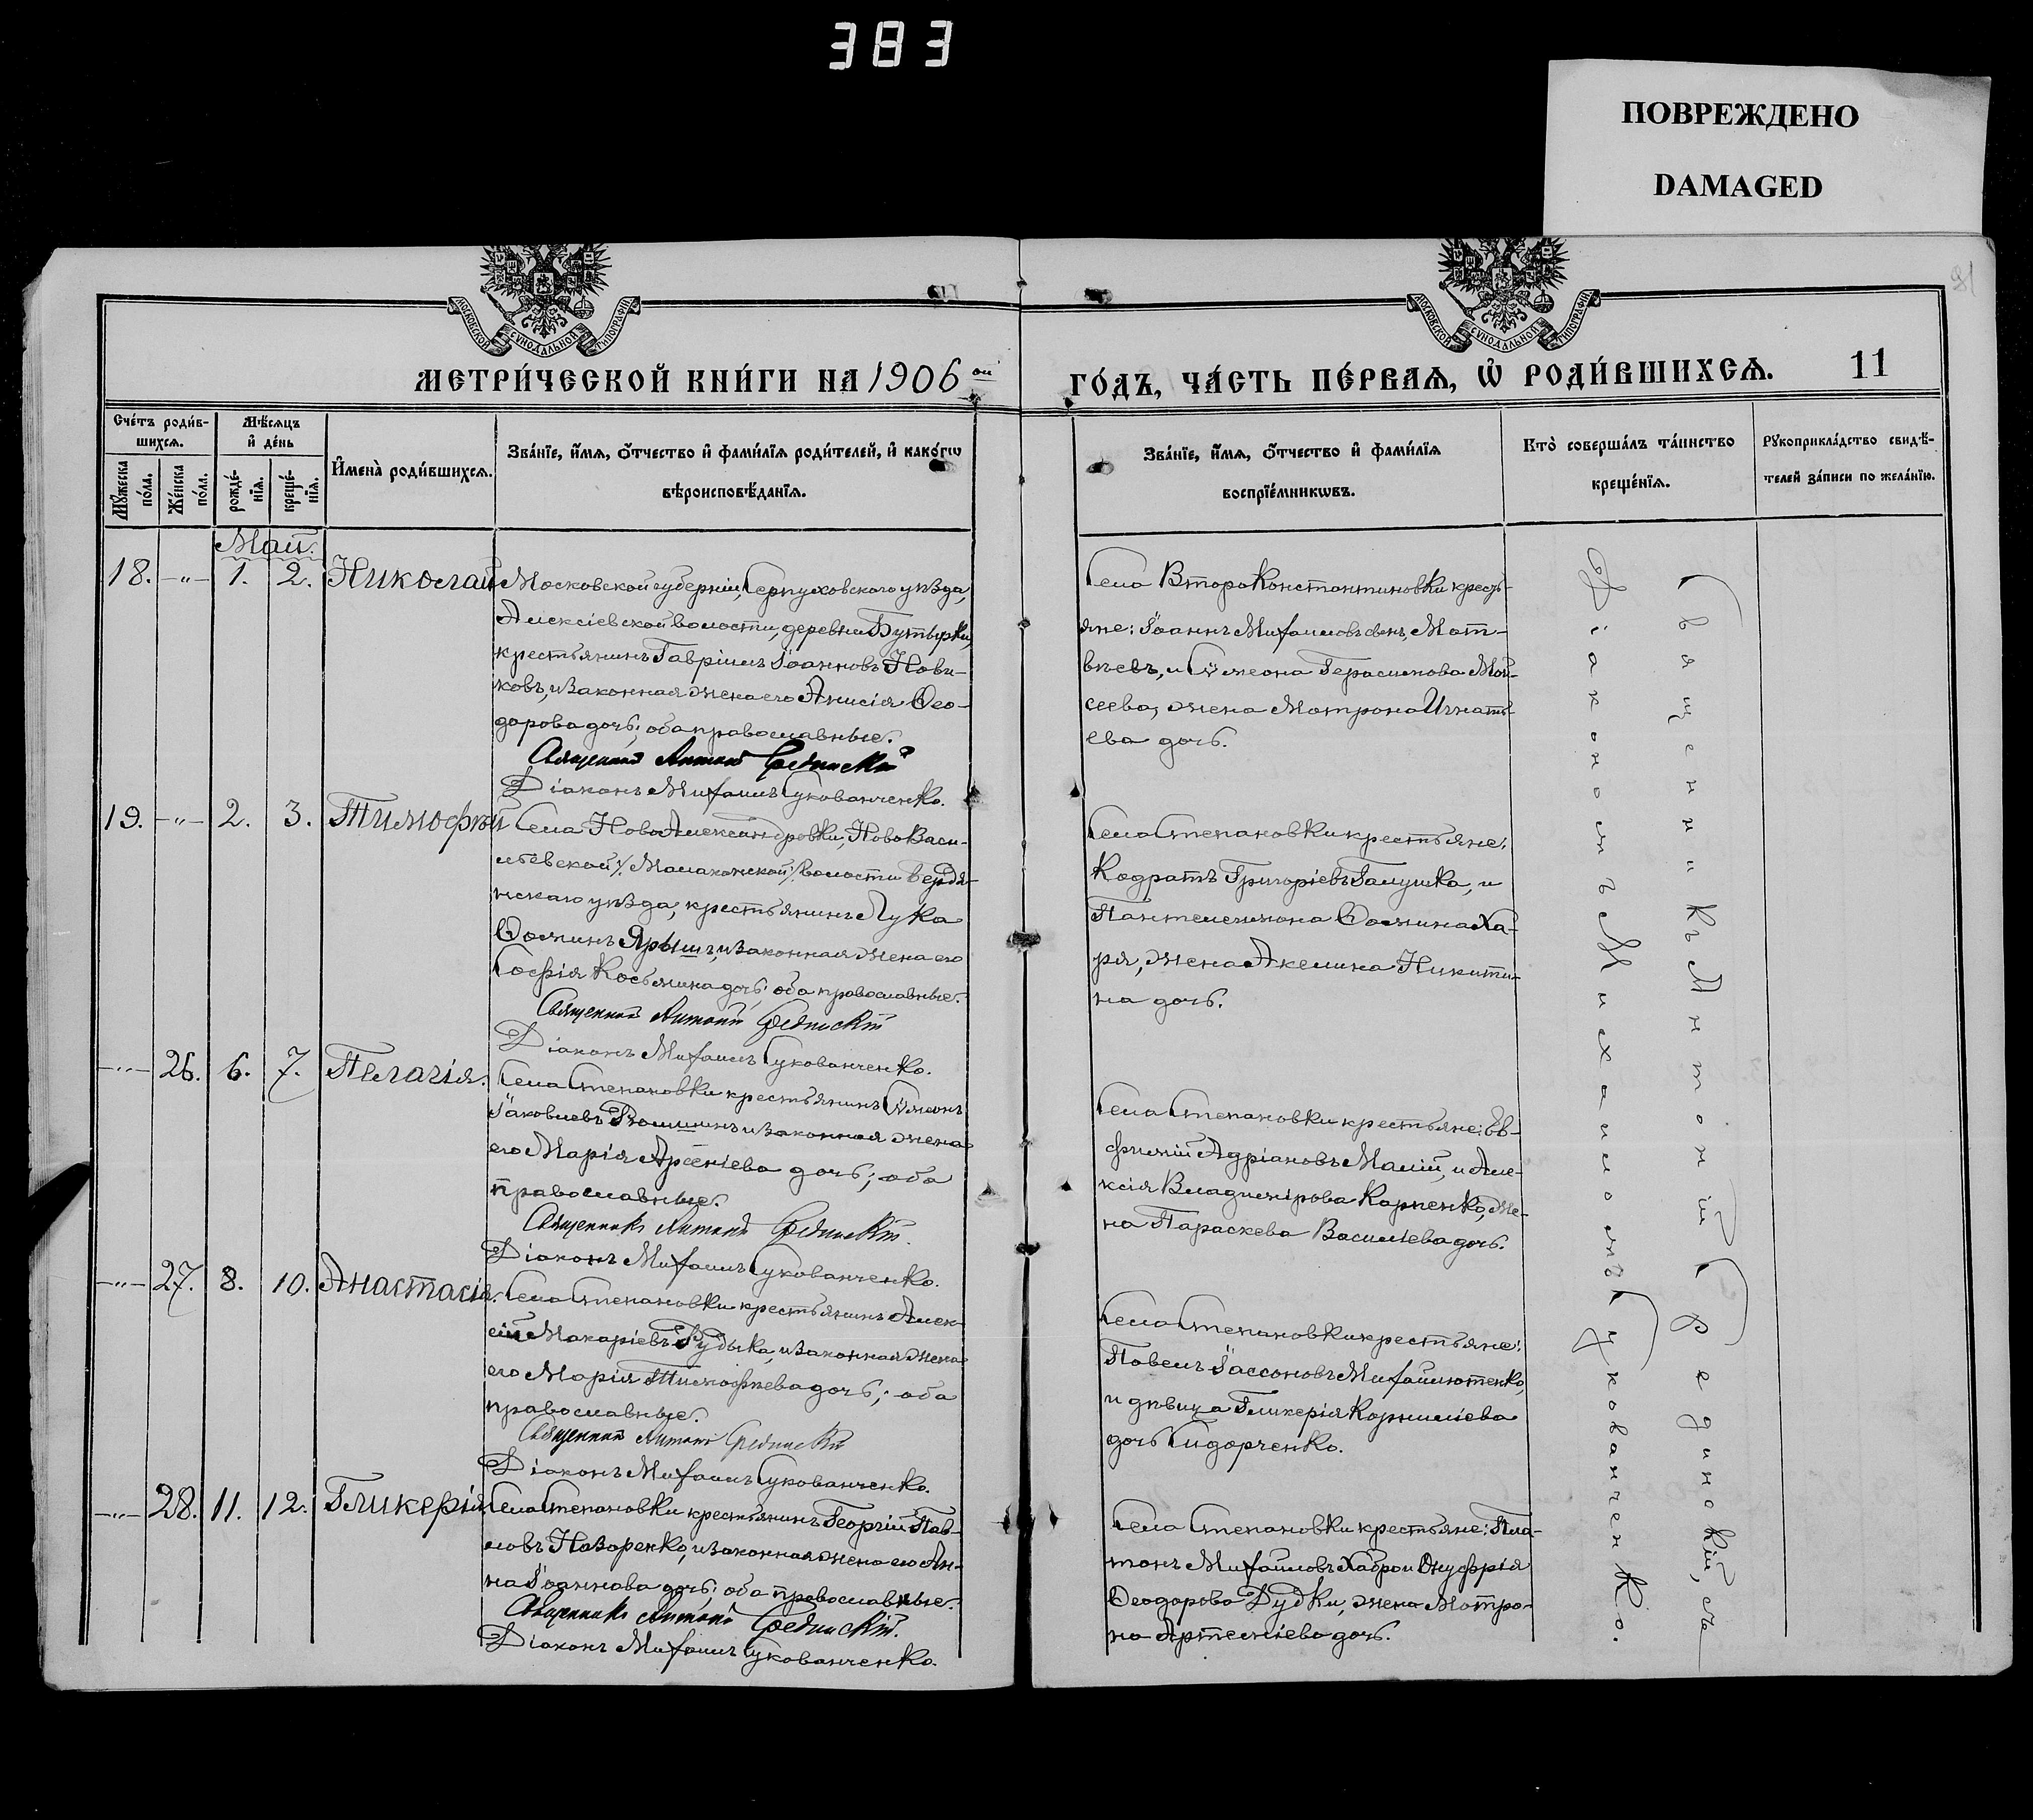 383
ПОВРЕЖДЕНО
DAMAGED
МОСКОВСКОЙ СѴНОДАЛЬНОЙ ТИПОГРАФІИ
МОСКОВСКОЙ СѴНОДАЛЬНОЙ ТИПОГРАФІИ
МЕТРИ́ЧЕСКОЙ КНИ́ГИ НА 1906 ой
ГО́ДЪ, ЧА́СТЬ ПЕ́РВАѦ, Ѡ҆ РОДИ́ВШИХСѦ. 11
Сче́тъ роди́в-
шихсѧ.
Мѣ́сѧцъ
и҆ де́нь
Мꙋ́жеска
по́ла.
Же́нска
по́ла.
рожде́-
нїѧ.
креще́-
нїѧ.
И҆мена̀ роди́вшихсѧ.
Зва́нїе, и҆́мѧ, ѻ҆́тчество и҆ фами́лїѧ роди́телей, и҆ како́гѡ
вѣроисповѣ́данїѧ.
Зва́нїе, и҆́мѧ, ѻ҆́тчество и҆ фами́лїѧ
воспрїе́мникѡвъ.
Кто̀ соверша́лъ та́инство
креще́нїѧ.
Рꙋкоприкла́дство свидѣ́-
телей за́писи по жела́нїю.
Май.
18. -"- 1. 2. Николай
Московской губерніи, Серпуховского уѣзда,
Алексіевской волости, деревни Бутырки,
крестьянинъ Гавріилъ Іоанновъ Нови-
ковъ, и законная жена его Анисія Ѳео-
дорова дочь; оба православные.
Священник Антоній Срединскій
Діаконъ Михаилъ Сукованченко.
Села ВтороКонстантиновки кресть-
яне: Іоаннъ Михаиловъ Мат-
вѣевъ, и Сѵмеона Герасимова Мой-
сеева, жена Матрона Игнать-
ева дочь.
19. -"- 2. 3. Тимофѣй
Села НовоАлександровки, НовоВаси-
льевской /Молаканской/ волости Бердя-
нскаго уѣзда, крестьянинъ Лука
Ѳоминъ Ярышъ, и законная жена его
Софія Косьмина дочь; оба православные.
Священник Антоній Срединскій
Діаконъ Михаилъ Сукованченко.
Села Степановки крестьяне:
Кодратъ Григоріевъ Галушка, и
Пантелеимона Ѳомина Ха-
ря, жена Акелина Никити-
на дочь.
-"- 26. 6. 7. Пелагія.
Села Степановки крестьянинъ Сѵмеонъ
Іаковлевъ и законная жена
его Марія Арсеніева дочь; оба
православные.
Священникъ Антоній Срединскій.
Діаконъ Михаилъ Сукованченко.
Села Степановки крестьяне: Ев-
фимій Адріановъ Малій, и Але-
ксія Владимірова Карпенко, же-
на Параскева Василіева дочь.
-"- 27. 8. 10. Анастасія.
Села Степановки крестьянинъ Алек-
сій Макаріевъ Рудыка, и законная жена
его Марія Тимофѣева дочь; оба
православные.
Священник Антоній Срединскій
Діаконъ Михаилъ Сукованченко.
Села Степановки крестьяне:
Павелъ Іассоновъ Михайлютенко,
и дѣвица Гликерія Корниліева
дочь Сидорченко.
-"- 28. 11. 12. Гликерія
Села Степановки крестьянинъ Георгій Пав-
ловъ Назаренко, и законная жена его Ан-
на Іоаннова дочь; оба православные.
Священникъ Антоній Срединскій.
Діаконъ Михаилъ Сукованченко.
Села Степановки крестьяне: Пла-
тонъ Михаиловъ Хабро и Онуфрія
Ѳеодорова Дудки, жена Матро-
на Артеміева дочь.
Священникъ Антоній Срединскій, съ
Діакономъ Михаиломъ Сукованченко.